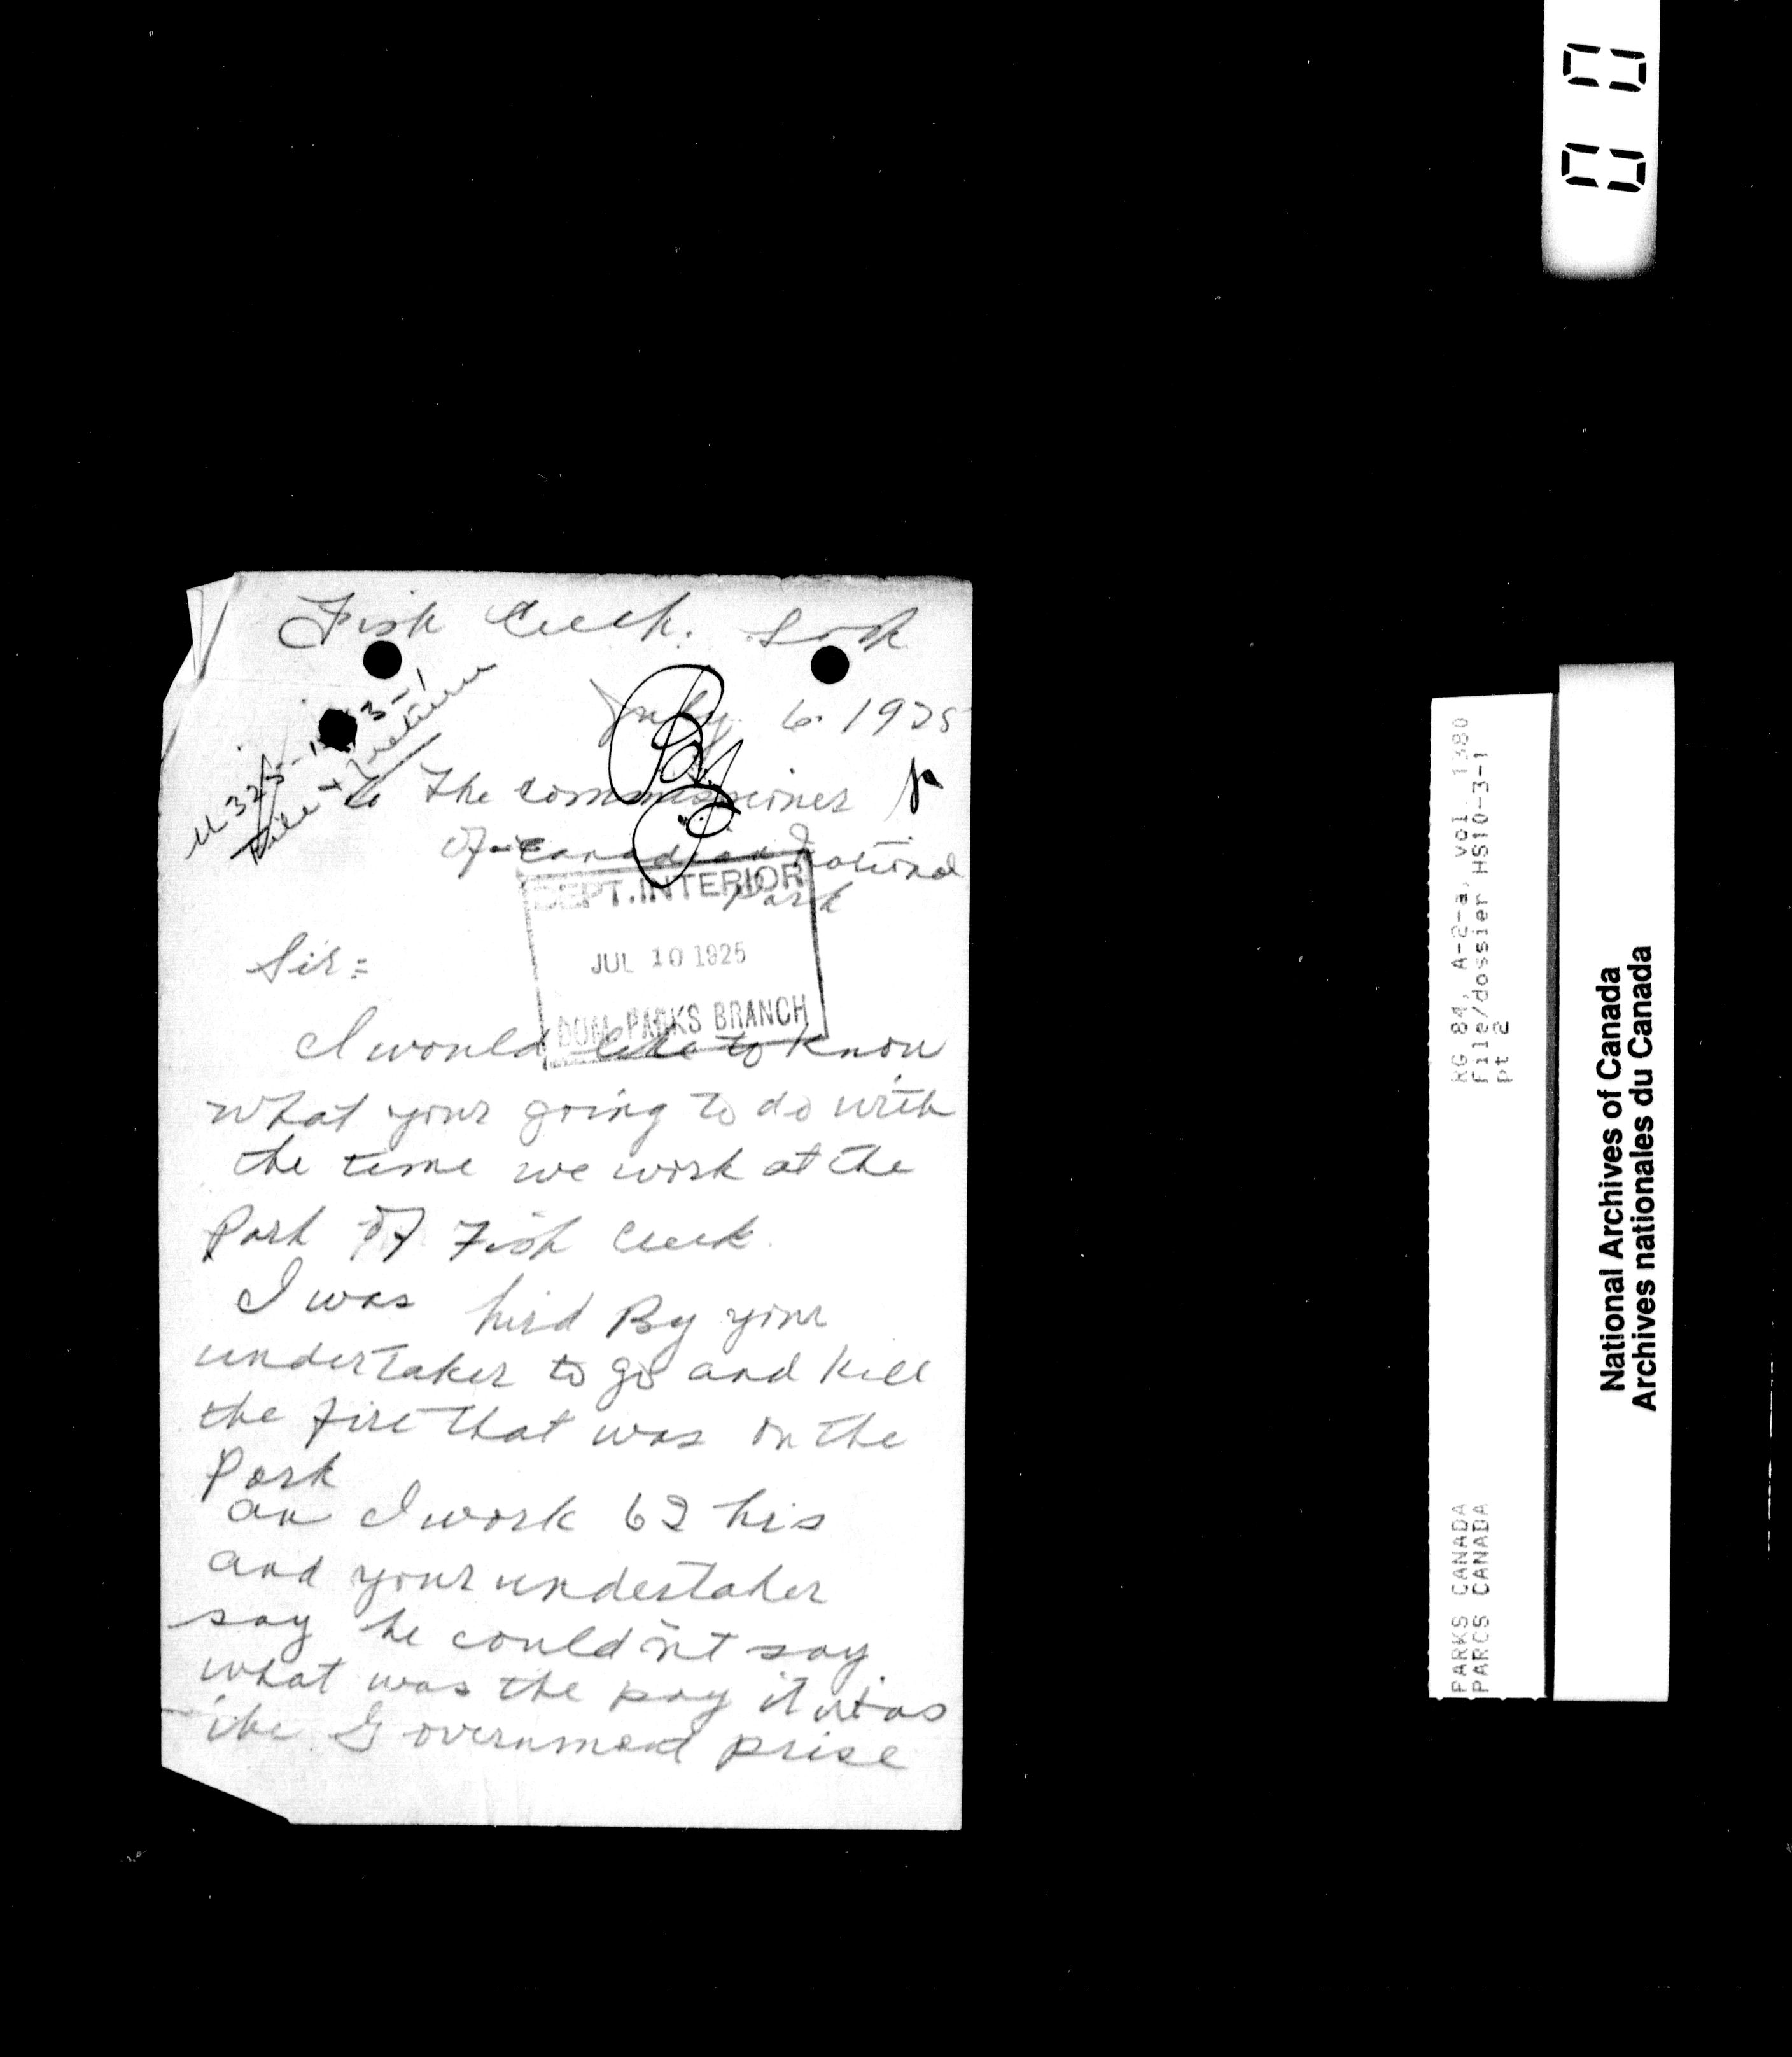 Fish Creek. Sask
July 6. 1925
to The commissioner
of Canadian National
Park
DEPT. INTERIOR
JUL 10 1925
DOM. PARKS BRANCH
Sir =
I would like to know
what your going to do with
the time we work at the
Park of Fish Creek.
I was hird By your
undertaker to go and kill
the fire that was on the
Park
an I work 62 hrs
and your undertaker
say he could'nt say
what was the pay it was
the Government prise
RG 84, A-2-a, vol. 1380
File/dossier HS10-3-1
pt 2
PARKS CANADA
PARCS CANADA
National Archives of Canada
Archives nationales du Canada